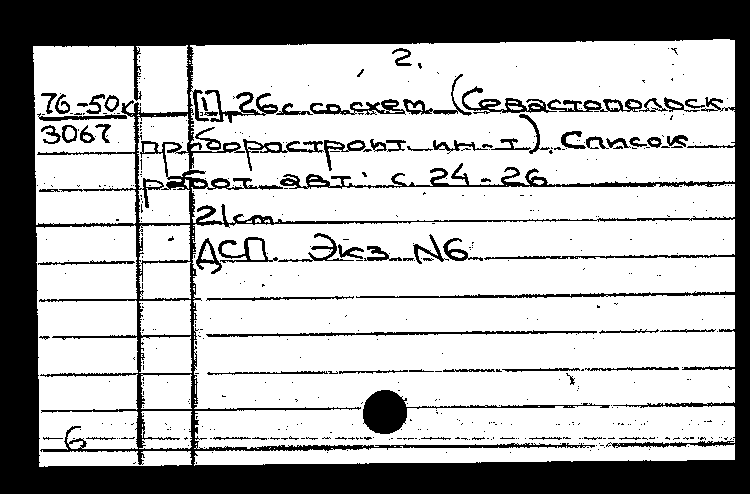 2.
76-50к [1], 26с. со схем. (Севастопольск.
3067 приборостроит. ин-т). Список
работ авт: с. 24-26
21см.
ДСП. Экз N6
6